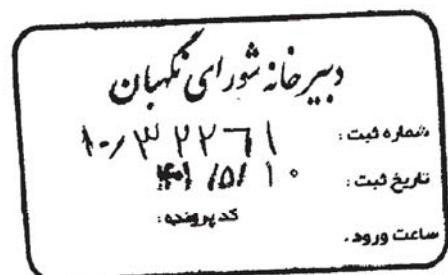 دبیرخانه شورای نگهبان
شماره ثبت: ۱۰۰/۳۲۲۶۱
تاریخ ثبت: ۱۴۰۱/۵/۱۰
کد پرونده:
ساعت ورود.